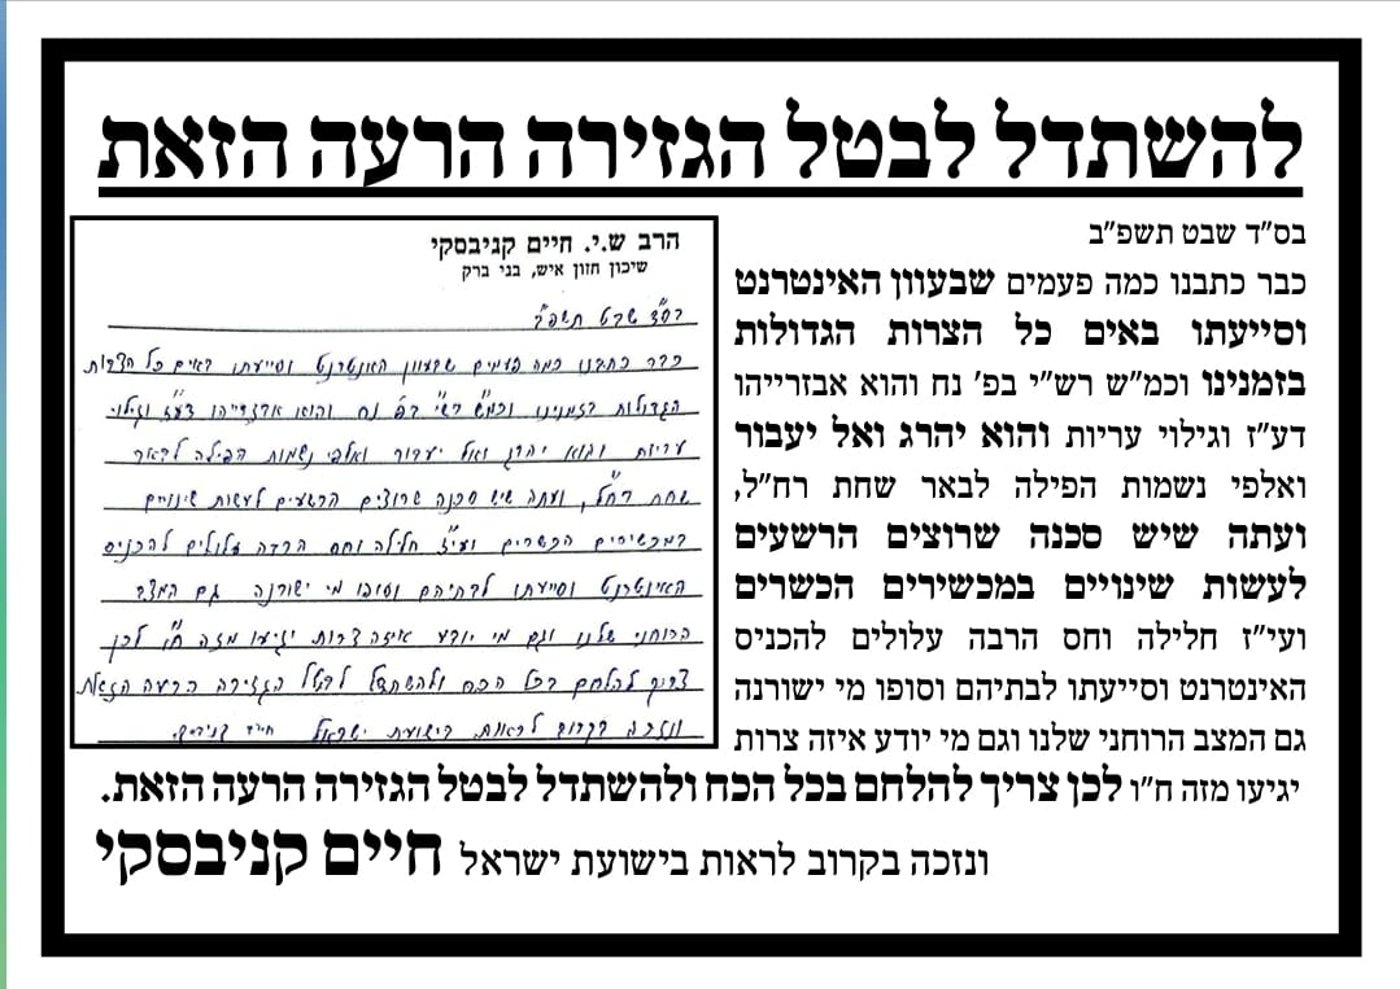 להשתדל לבטל הגזירה הרעה הזאת
בס״ד שבט תשפ״ב
כבר כתבנו כמה פעמים שבעוון האינטרנט
וסייעתו באים כל הצרות הגדולות
בזמנינו וכמ״ש רש״י בפ׳ נח והוא אבזרייהו
דע״ז וגילוי עריות והוא יהרג ואל יעבור
ואלפי נשמות הפילה לבאר שחת רח״ל,
ועתה שיש סכנה שרוצים הרשעים
לעשות שינויים במכשירים הכשרים
ועי״ז חלילה וחס הרבה עלולים להכניס
האינטרנט וסייעתו לבתיהם וסופו מי ישורנה
גם המצב הרוחני שלנו וגם מי יודע איזה צרות
יגיעו מזה ח״ו לכן צריך להלחם בכל הכח ולהשתדל לבטל הגזירה הרעה הזאת.
ונזכה בקרוב לראות בישועת ישראל חיים קניבסקי
הרב ש.י. חיים קניבסקי
שיכון חזון איש, בני ברק
בס״ד שבט תשפ״ב
כבר כתבנו כמה פעמים שבעוון האינטרנט וסייעתו באים כל הצרות
הגדולות בזמנינו וכמ״ש רש״י בפ׳ נח והוא אבזרייהו דע״ז וגילוי
עריות והוא יהרג ואל יעבור ואלפי נשמות הפילה לבאר
שחת רח״ל, ועתה שיש סכנה שרוצים הרשעים לעשות שינויים
במכשירים הכשרים ועי״ז חלילה וחס הרבה עלולים להכניס
האינטרנט וסייעתו לבתיהם וסופו מי ישורנה גם המצב
הרוחני שלנו וגם מי יודע איזה צרות יגיעו מזה ח״ו לכן
צריך להלחם בכל הכח ולהשתדל לבטל הגזירה הרעה הזאת
ונזכה בקרוב לראות בישועת ישראל חיים קניבסקי